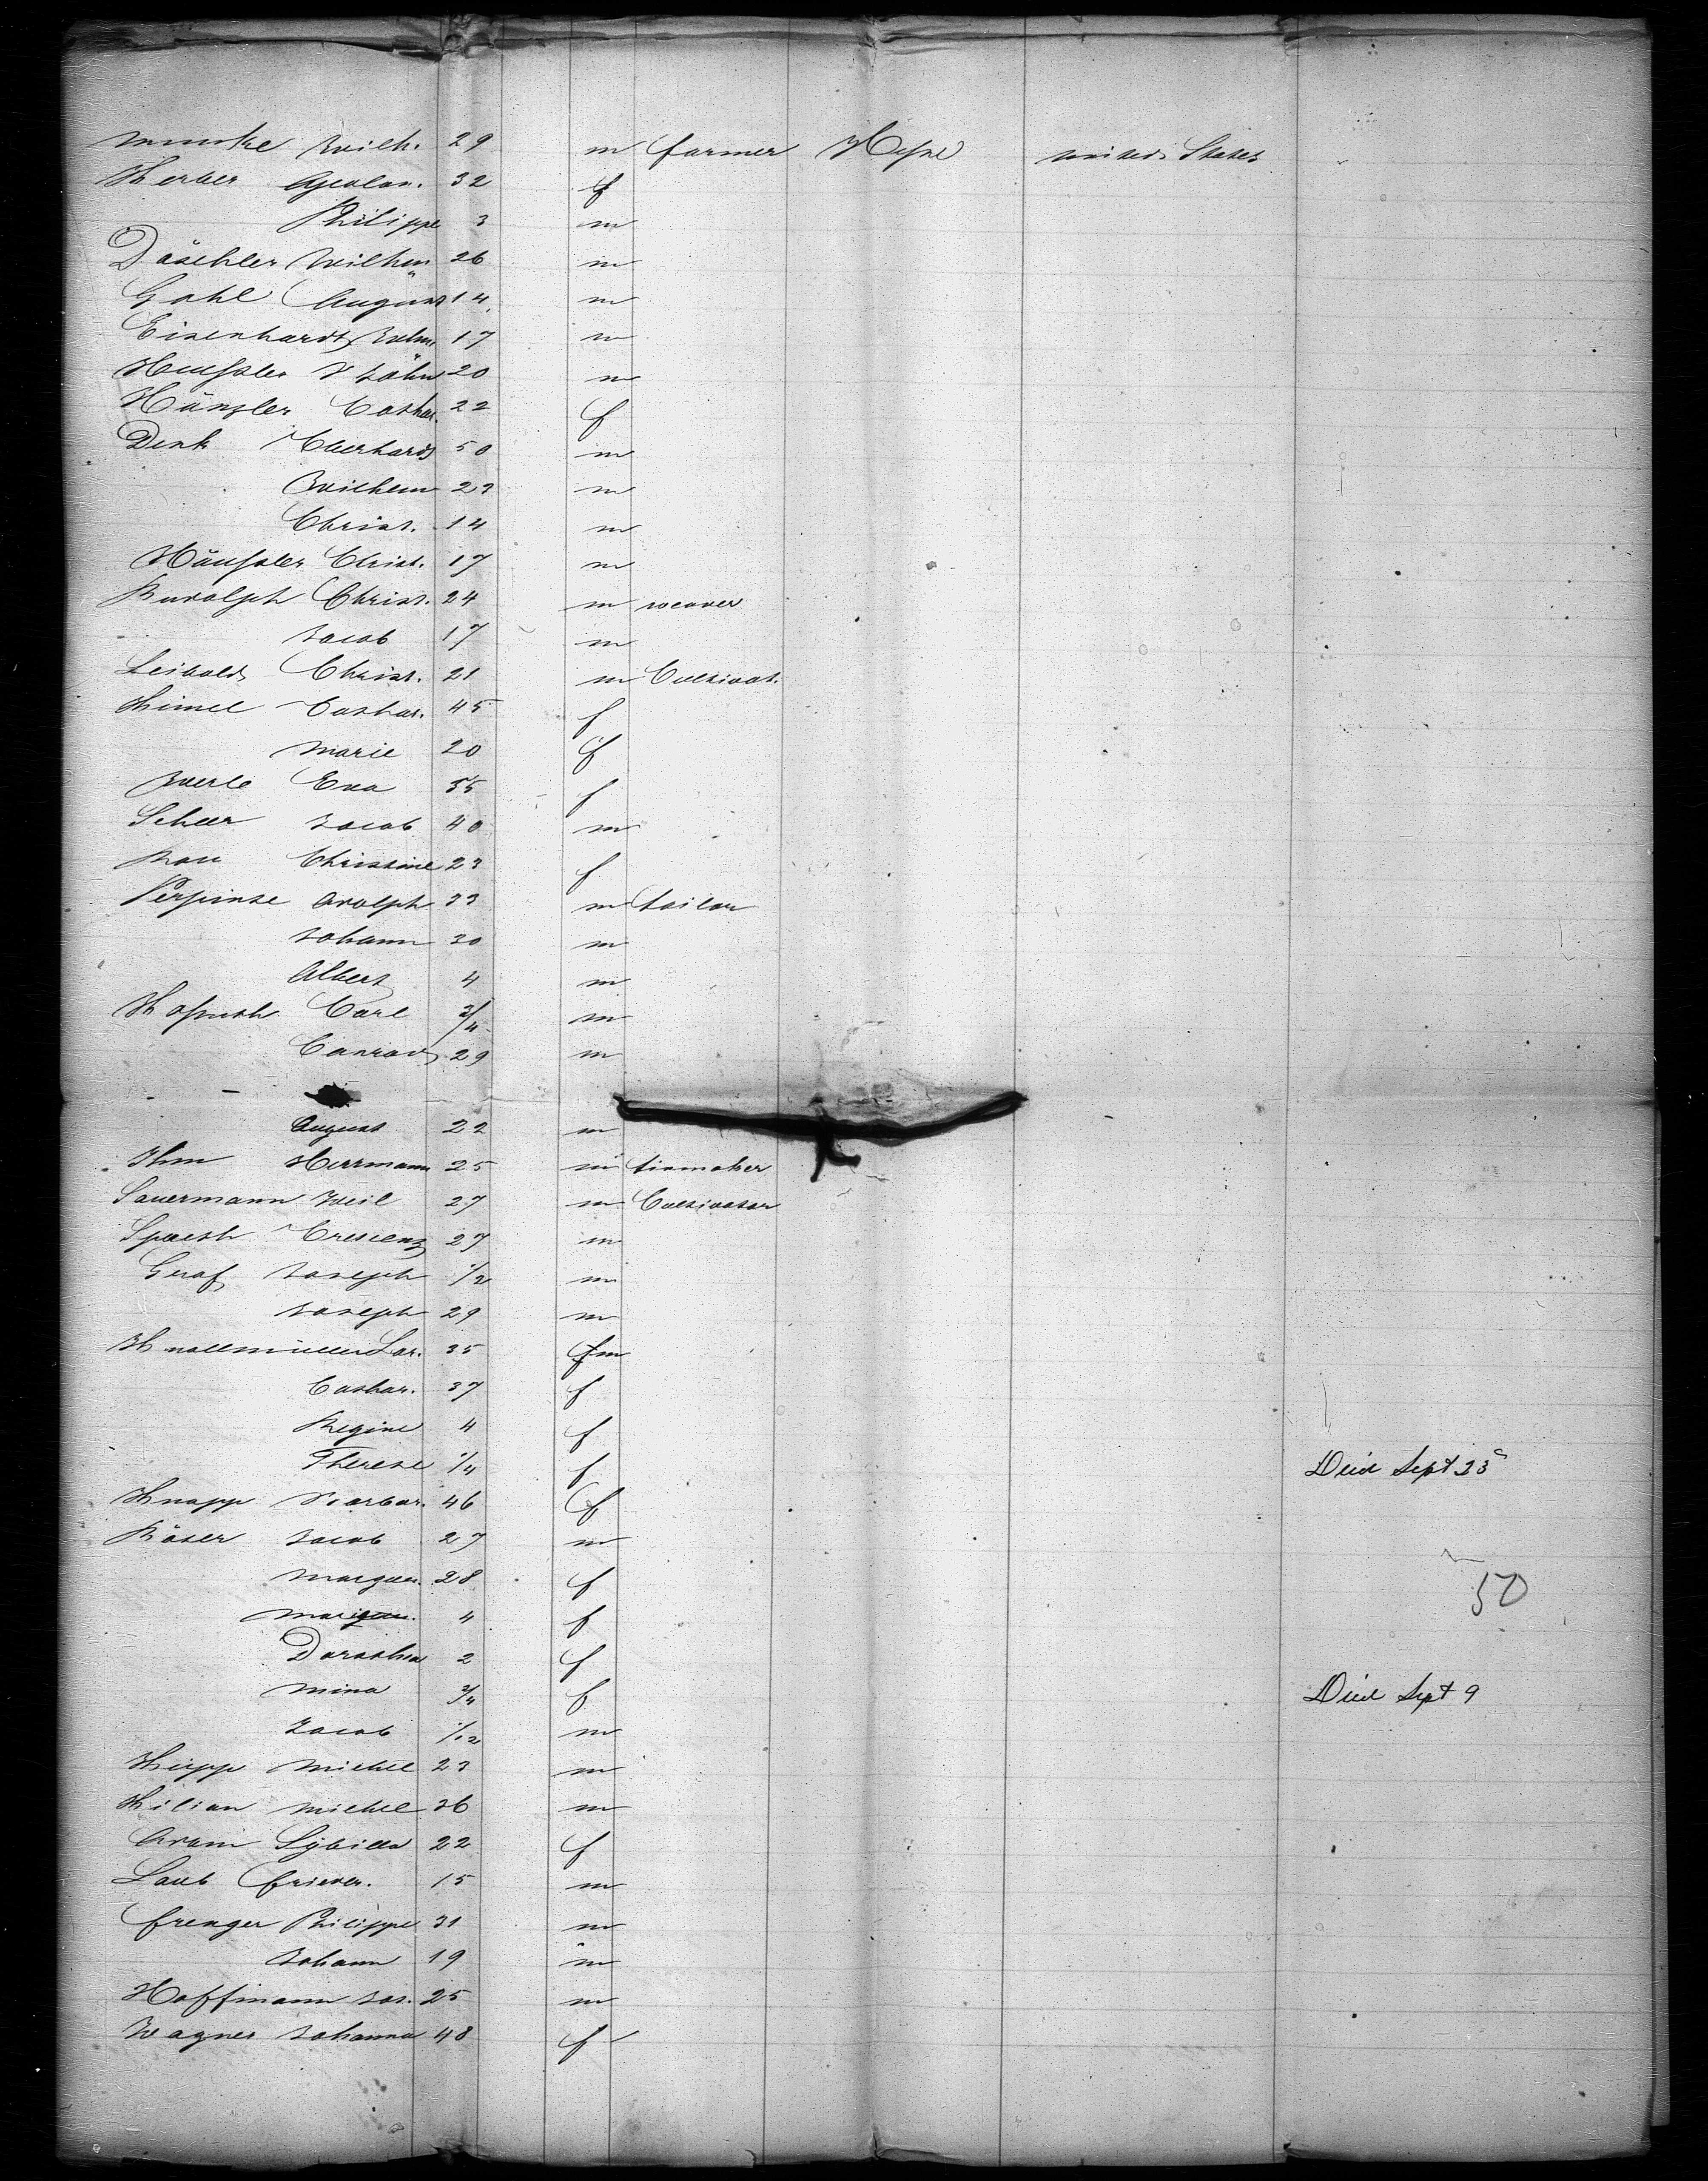 Wilh. 29 m farmer Hesse united States
Kerber 32 f
Philippe 3 m
Däschler Wilhm 26 m
Gahl August 14 m
Eisenhardt, Wilm 17 m
20 m
Hänsler Cathar. 22 f
Denk Eberhard 50 m
Wilhem 23 m
Christ. 14 m
Häussler Christ. 17 m
Rudolph Christ. 24 m weaver
Jacob 17 m
Leibold Christ. 21 m Cultivat.
Kimel Cathar. 45 f
Marie 20 f
Eva 55 f
Scheer Jacob 40 m
Rau Christine 23 f
Adolph 33 m tailor
Johann 30 m
Albert 4 m
Carl 3/4 m
Conrad 29 m
August 22 m
Herrmann 25 m
Sauermann 27 m Cultivator
Spaeth Crescenz 27 m
Graf Joseph 1/2 m
Joseph 29 m
Knollmüller 35 fm
Cathar. 37 f
Regine 4 f
Therese 1/4 f Died Sept 23
Knapp Barbar. 46 f
Röser Jacob 27 m
Margar. 28 f
50
4 f
Dorothea 2 f
Mina 3/4 f Died Sept 9
Jacob 1/12 m
Michel 23 m
Kilian Michel 36 m
Adam Sybilla 22 f
Laub frieder. 15 m
frenger Philippe 31 m
Johann 19 m
Hoffmann Jos. 25 m
Wagner Johanna 48 f